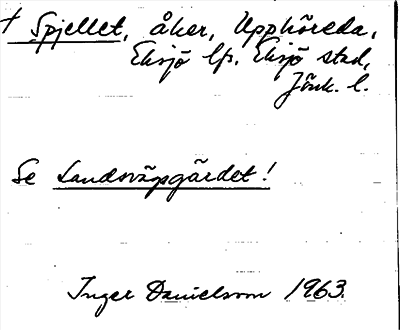 † Spjellet, åker, Upphöreda,
Eksjö lfs. Eksjö stad,
Jönk. l.
Se Landsvägsgärdet!
Inger Danielsson 1963.